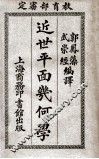 教育部審定
郭鳳藻
武崇經
編譯
近世平面幾何學
上海商務印書館出版